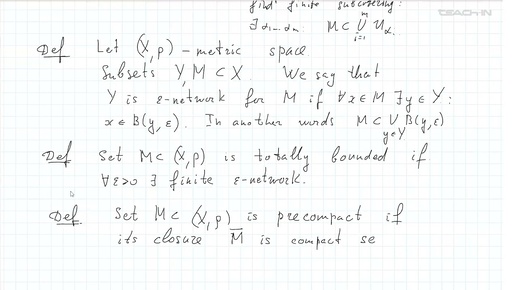 TEACH-IN
find finite subcovering:
∃ α₁...αₘ M ⊂ ⋃ᵢ₌₁ᵐ U_αᵢ
Def Let (X, ρ) - metric space
Subsets Y, M ⊂ X. We say that
Y is ε-network for M if ∀x∈M ∃y∈Y:
x ∈ B(y, ε). In another words M ⊂ ⋃ B(y, ε)
y∈Y
Def Set M ⊂ (X, ρ) is totally bounded if
∀ε>0 ∃ finite ε-network.
Def Set M ⊂ (X, ρ) is precompact if
its closure M̄ is compact se